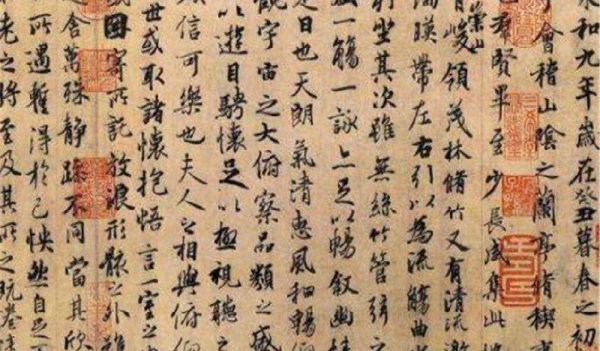 永和九年歲在癸丑暮春之初
會稽山陰之蘭亭脩稧
群賢畢至少長咸集此
有崇山峻領茂林脩竹又有清流激
湍暎帶左右引以為流觴曲
列坐其次雖無絲竹管弦之
一觴一詠亦足以暢敘幽
是日也天朗氣清惠風和暢
觀宇宙之大俯察品類之盛
以遊目騁懷足以極視聽之
信可樂也夫人之相與俯仰
世或取諸懷抱悟言一室之
或因寄所託放浪形骸之外雖
舍萬殊靜躁不同當其欣
所遇暫得於己怏然自足
老之將至及其所之既惓